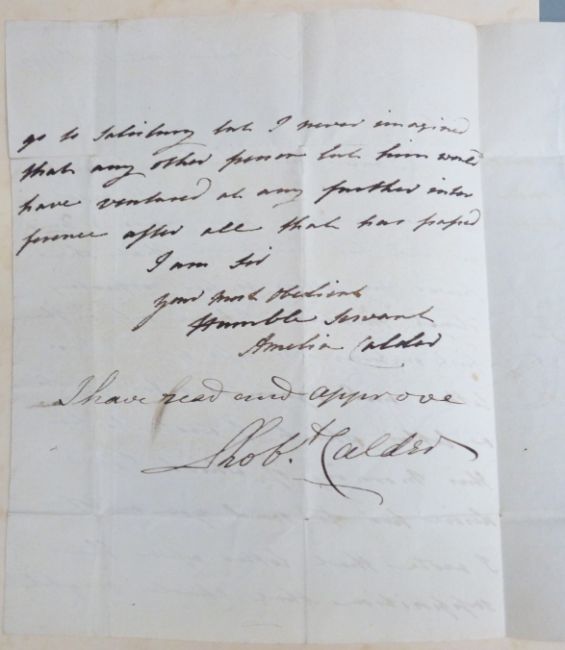 go to Salisbury but I never imagined
that any other person but him would
have ventured at any further inter
ference after all that has passed
I am Sir
your most Obedient
Humble Servant
Amelia Calder
I have read and approve
Rob.t Calder